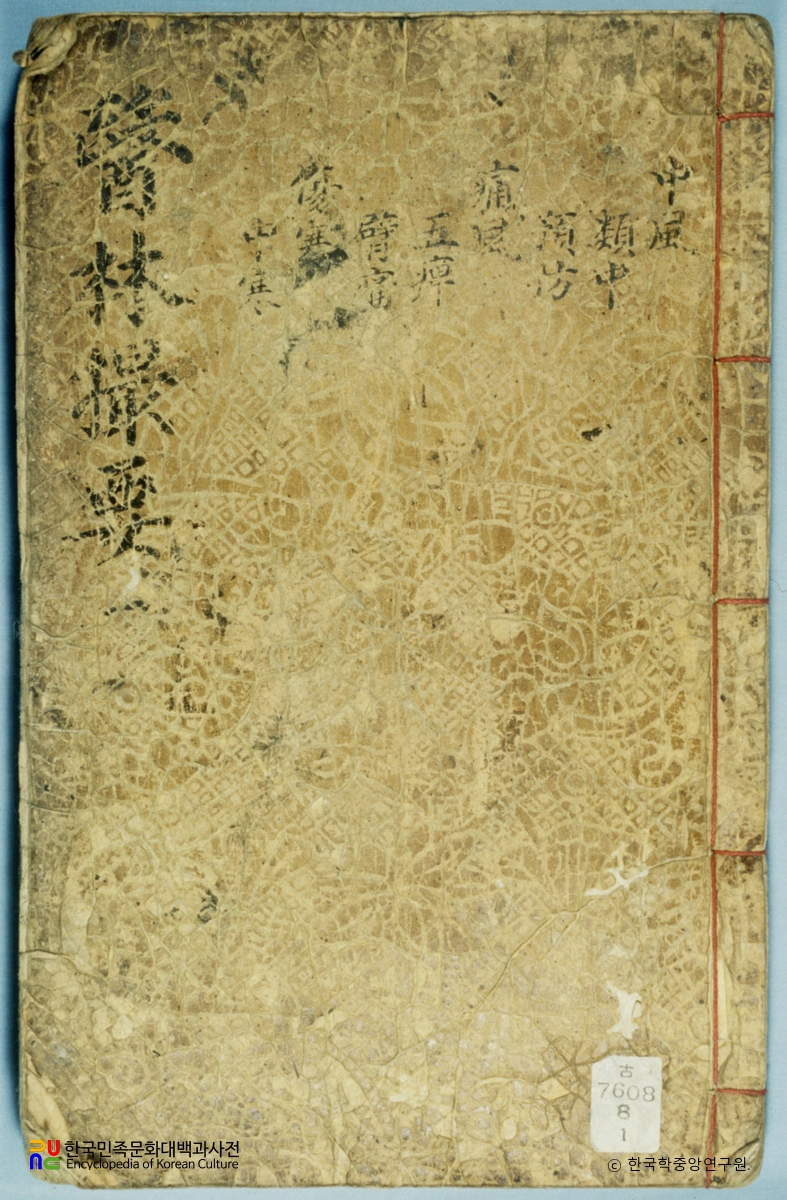 中風
類中
預防
痛風
五痺
臂
傷寒
中寒
醫林撮要 一
古
7608
8
1
한국민족문화대백과사전
Encyclopedia of Korean Culture
© 한국학중앙연구원